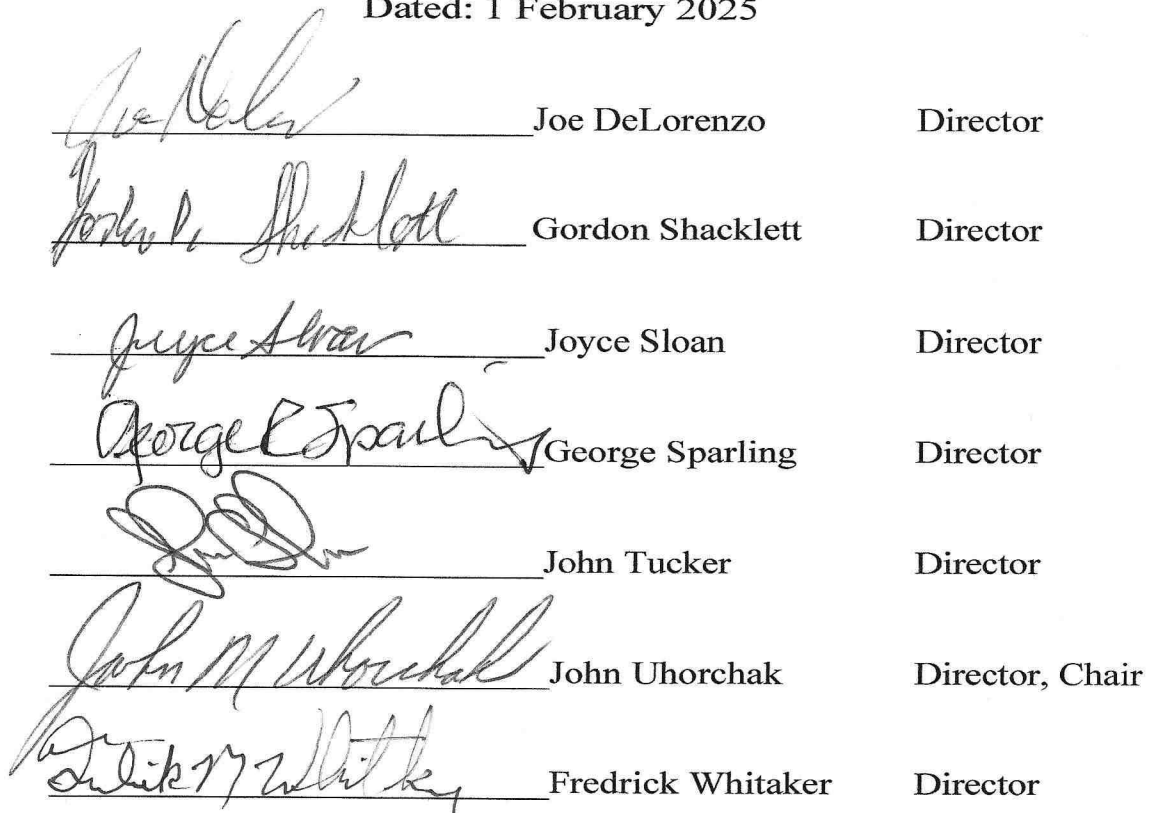 Dated: 1 February 2025
Joe DeLorenzo Director
Gordon Shacklett Gordon Shacklett Director
Joyce Sloan Joyce Sloan Director
George R Sparling George Sparling Director
John Tucker Director
John M Uhorchak John Uhorchak Director, Chair
Fredrick M Whitaker Fredrick Whitaker Director